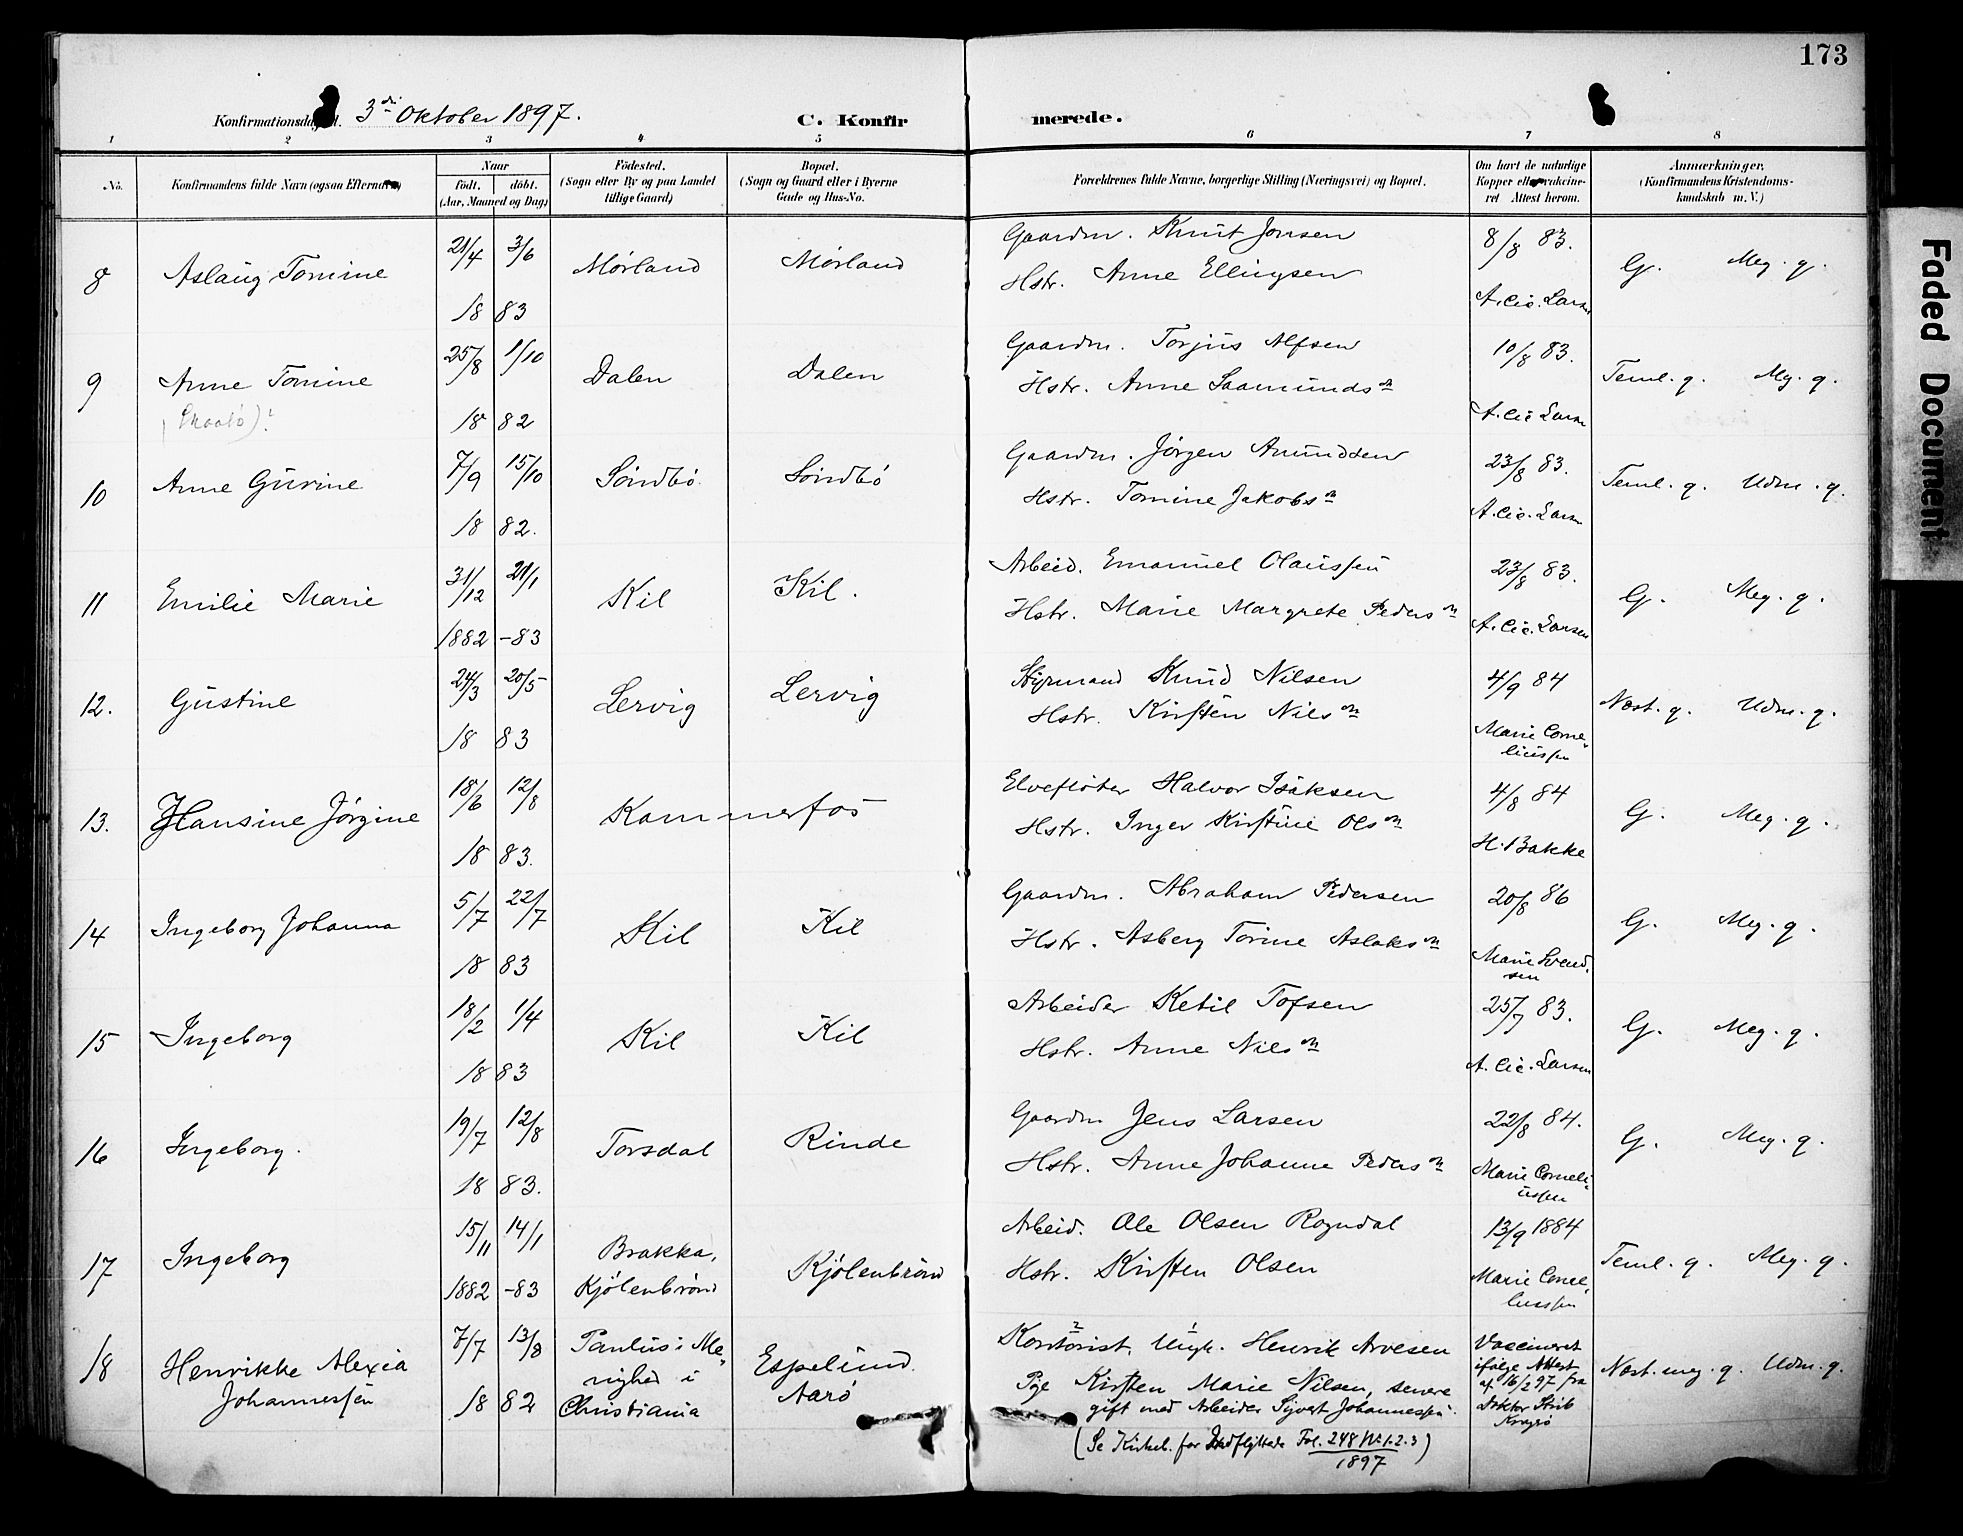 173
Konfirmationsdag 3di Oktober 1897. C. Konfirmerede.
1 2 3 4 5 6 7 8
No. Konfirmandens fulde Navn (ogsaa Efternavn) Naar födt. döbt. (Aar, Maaned og Dag) Födested. (Sogn eller By og paa Landet tillige Gaard) Bopæl. (Sogn og Gaard eller i Byerne Gade og Hus-No. Forældrenes fulde Navne, borgerlige Stilling (Næringsvei) og Bopæl. Om havt de naturlige Kopper eller vakcineret Attest herom. Anmærkninger, (Konfirmandens Kristendomskundskab m. V.)
8 Aslaug Tomine 21/4 3/6 1883 Mørland Mørland Gaardm. Knut Jonsen 8/8 83. G. Meg. g.
Hstr. Anne Ellingsen A. Cic. Larsen
9 Anne Tomine 25/8 1/10 1882 Dalen Dalen Gaardm. Torjus Alfsen 10/8 83. Teml. g. Mg. g.
(Skaatø)? Hstr. Anne Saamundsn A. Cic Larsn
10 Anne Gurine 7/9 15/10 1882. Söndbö Söndbö Gaardm. Jörgen Amundsen 23/8 83. Teml. g. Udm. g.
Hstr. Tomine Jakobsn A. Cic. Larsn
11 Emilie Marie 31/12 21/1 1882 -83 Kil Kil. Arbeid. Emanuel Olaussen 23/8 83. G. Meg. g.
Hstr. Marie Margrete Pedersn A. Cic. Larsen
12. Gustine 24/3 20/5 1883 Lervig Lervig Styrmand Knud Nilsen 4/9 84 Næst. g. Udm. g.
Hstr. Kirsten Nilsn Marie Corneliussen
13. Hansine Jørgine 18/6 12/8 1883. Kammerfos Elvefløter Halvor Isaksen 4/8 84 G. Meg. g.
Hstr. Inger Kirstine Olsn H. Bakke
14 Ingeborg Johanna 5/7 22/7 1883 Kil Kil Gaardm. Abraham Pedersen 20/8 86 G. Meg. g.
Hstr. Asberg Torine Aslaksn Marie Svendsen
15 Ingeborg 18/2 1/4 1883 Kil Kil Arbeider Ketil Tofsen 25/7 83. G. Meg. g.
Hstr. Anne Nilsn A. Cic. Larsen
16 Ingeborg. 19/7 12/8 1883. Torsdal Rinde Gaardm Jens Larsen 22/8 84. G. Meg. g.
Hstr. Anne Johanne Pedersn Marie Corneliussen
17 Ingeborg 15/11 14/1 1882 -83 Brakka, Kjölenbrønd Kjölenbrønd Arbeid. Ole Olsen Rogndal 13/9 1884 Teml. g. Meg. g.
Hstr. Kirsten Olsen Marie Corneliussen
18 Henrikke Alexia Johannessen 7/7 13/8 1882 Paulus i Menighed i Christiania Espelund Aarö Kontorist, Ungk. Henrik Arvesen Vaccineret ifølge Attest af 16/2 97 fra Doktor Kragerø Næst. meg. g. Udm. g.
Pige Kirsten Marie Nilsen, senere
gift med Arbeider Sijvert Johannessen.
(Se Kirkeb. for Indflyttede Fol. 248 No 1.2.3 1897)
Faded Document